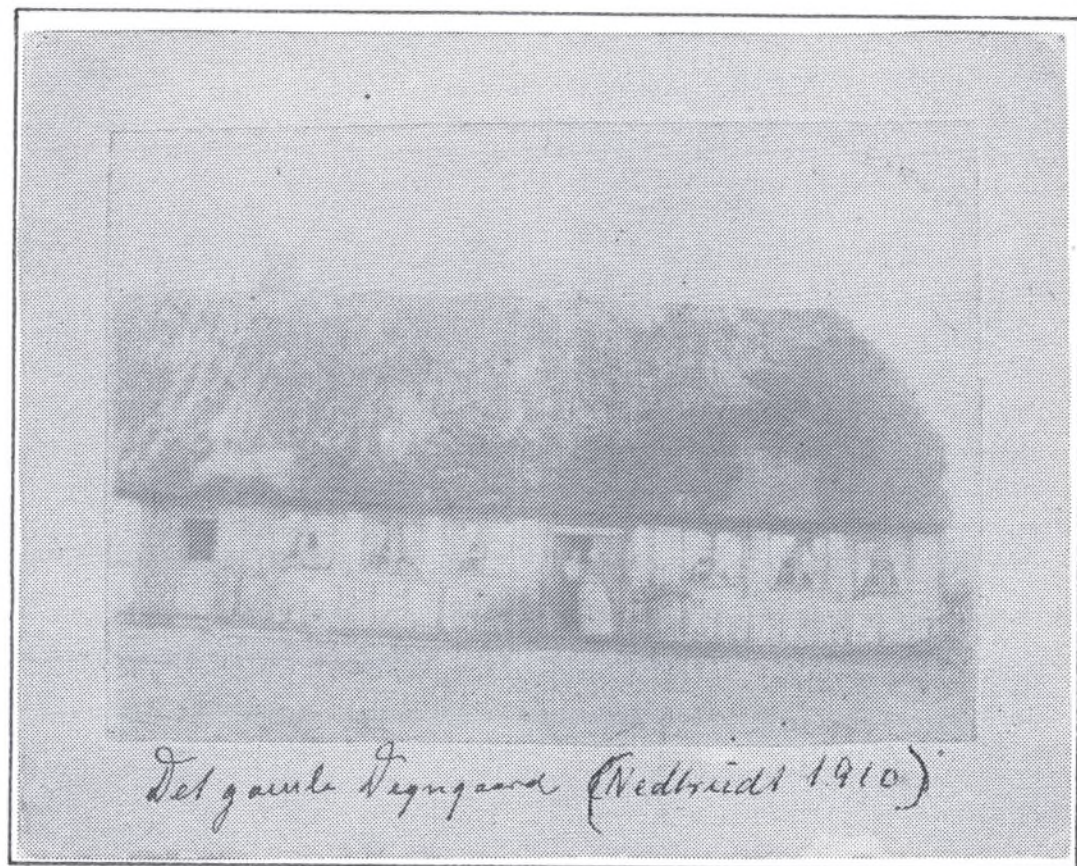 Det gamle Degngaard (Nedbrudt 1910)